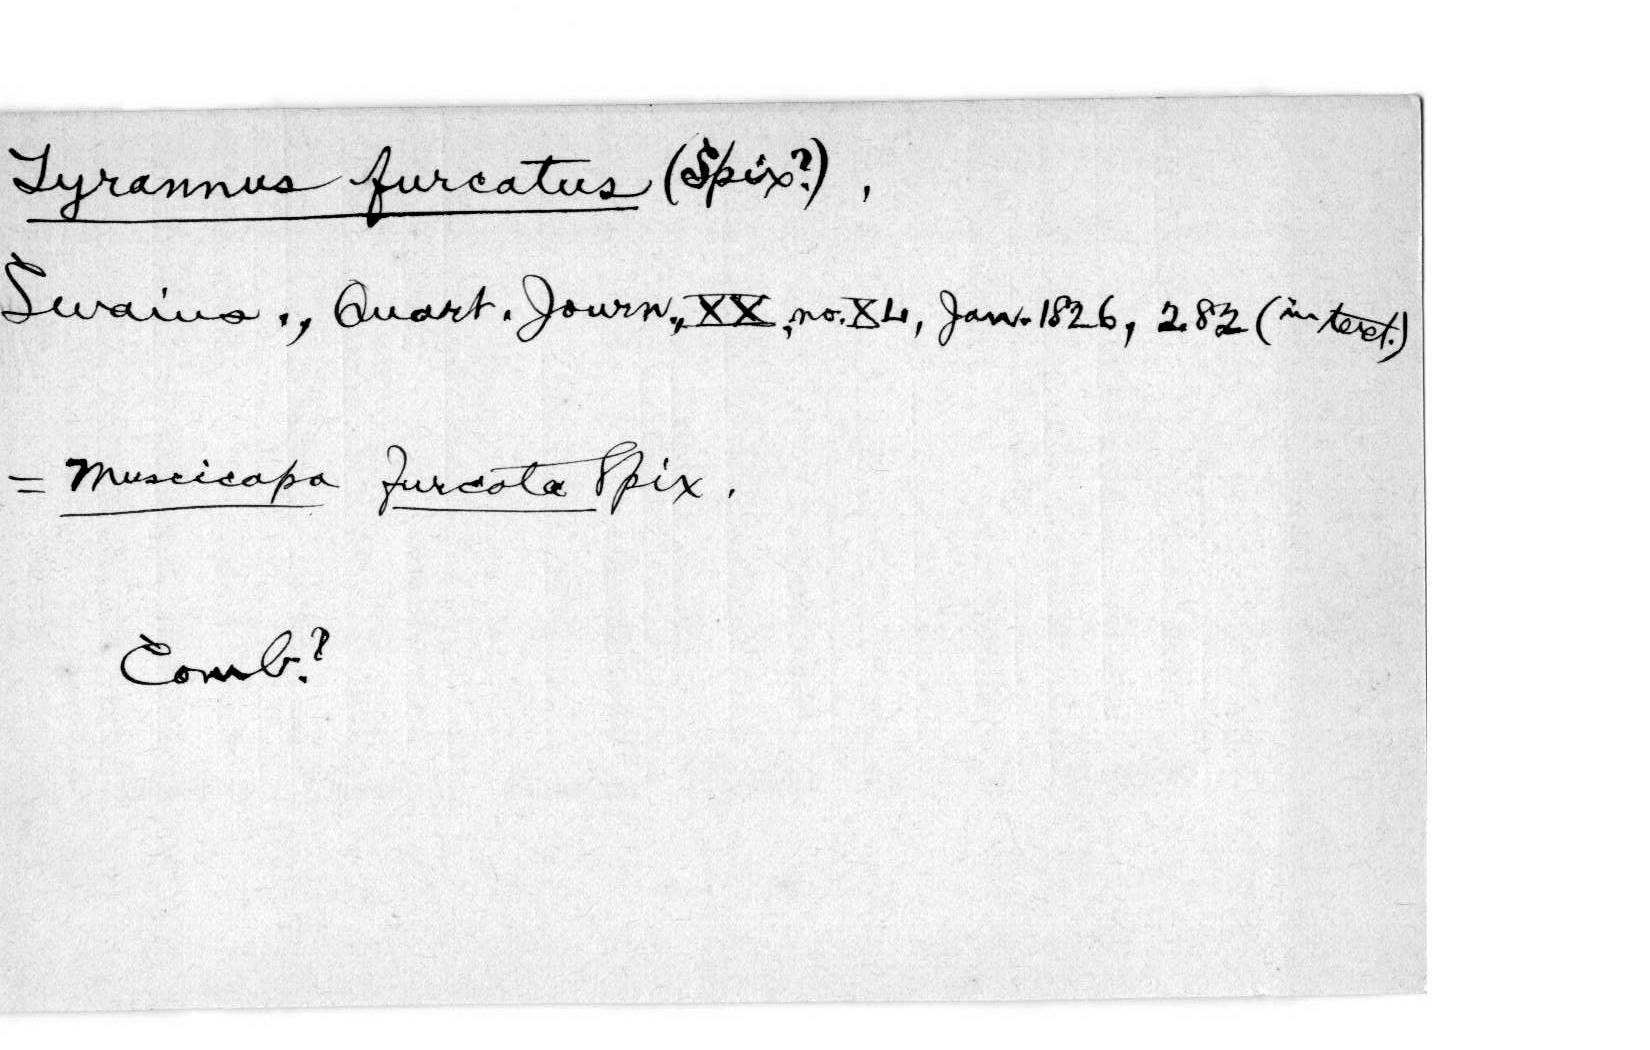 Tyrannus furcatus (Spix?),
Swains., Quart. Journ., XX, no. XL, Jan. 1826, 282 (in text.)
= Muscicapa furcata Spix.
Comb.?